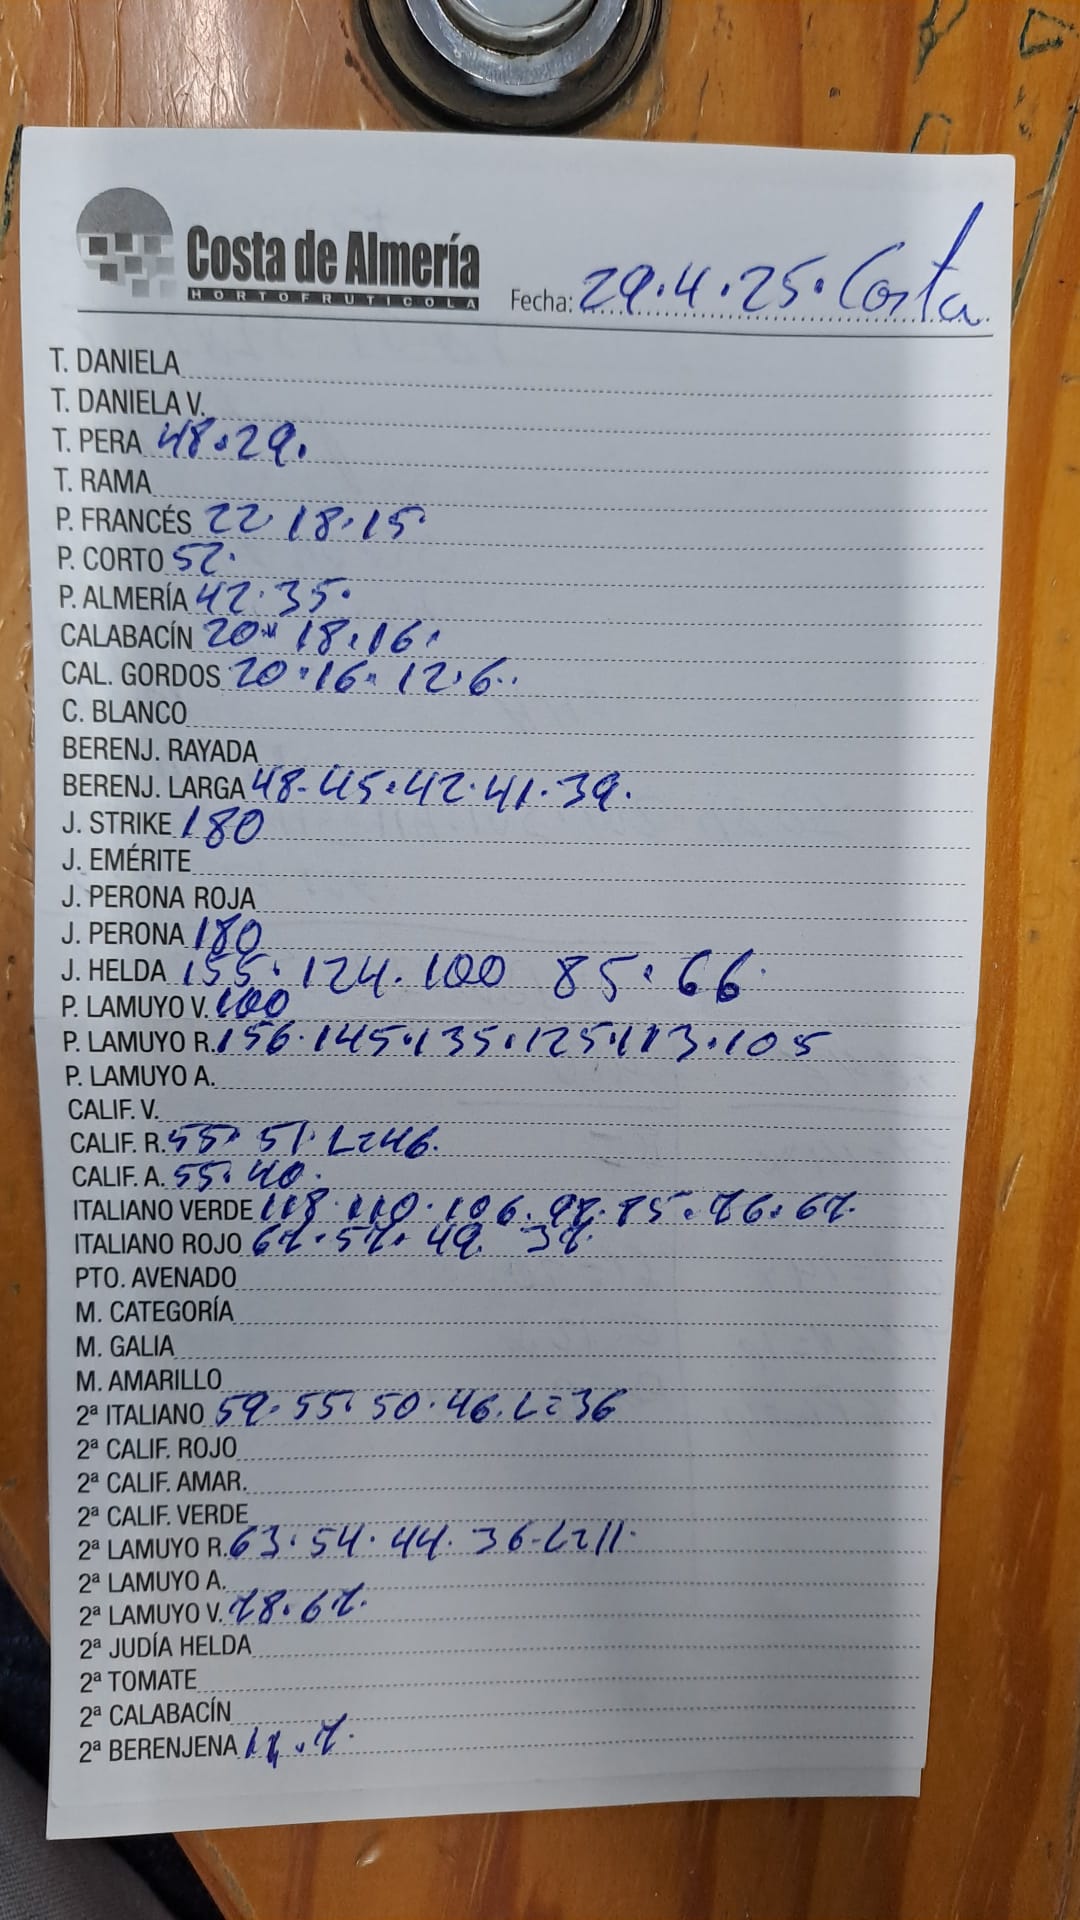 Costa de Almería
HORTOFRUTICOLA
Fecha: 29.4.25. Costa
T. DANIELA
T. DANIELA V.
T. PERA 48.29.
T. RAMA
P. FRANCÉS 22.18.15.
P. CORTO 52.
P. ALMERÍA 42.35.
CALABACÍN 20. 18.16.
CAL. GORDOS 20.16. 12.6..
C. BLANCO
BERENJ. RAYADA
BERENJ. LARGA 48-45.42.41.39.
J. STRIKE 180
J. EMÉRITE
J. PERONA ROJA
J. PERONA 180
J. HELDA 155.124.100 85.66.
P. LAMUYO V. 100
P. LAMUYO R. 156.145.135.125.113.105
P. LAMUYO A.
CALIF. V.
CALIF. R. 55. 51. L=46.
CALIF. A. 55.40.
ITALIANO VERDE 118.110.106.97.85.76.67.
ITALIANO ROJO 67.57.49. 37.
PTO. AVENADO
M. CATEGORÍA
M. GALIA
M. AMARILLO
2ª ITALIANO 59.55.50.46.L=36
2ª CALIF. ROJO
2ª CALIF. AMAR.
2ª CALIF. VERDE
2ª LAMUYO R. 63.54.44.36-L=11.
2ª LAMUYO A.
2ª LAMUYO V. 78.67.
2ª JUDÍA HELDA
2ª TOMATE
2ª CALABACÍN
2ª BERENJENA .7.